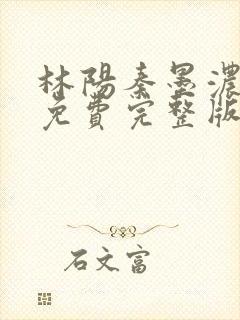 林陽秦墨濃
免費完整版
石文富